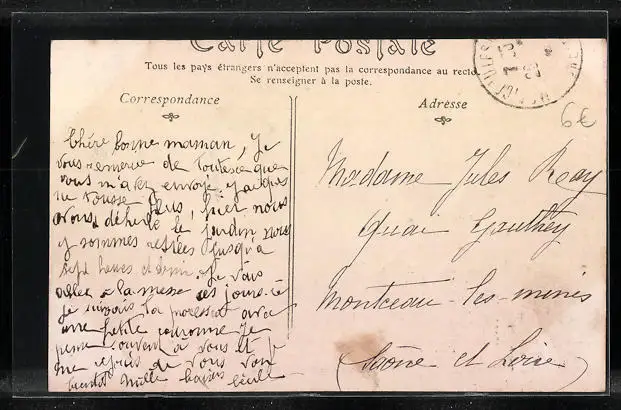 Carte Postale
Tous les pays étrangers n'acceptent pas la correspondance au recto
Se renseigner à la poste.
Correspondance
Adresse
6€
Chère bonne maman, Je
vous remercie de que
vous m'avez envoyé,
ne tousse plus, hier nous
avons le jardin nous
y sommes restées jusqu'à
sept heures et demi. Je vais
aller à la messe ces jours-ci
Je suivais la procession avec
une petite couronne Je
pense souvent à vous et
me réjouis de vous voir
bientôt Mille baisers Cécile
Madame Jules Reay
Quai Gauthey
Montceau-les-mines
(Saône et Loire)